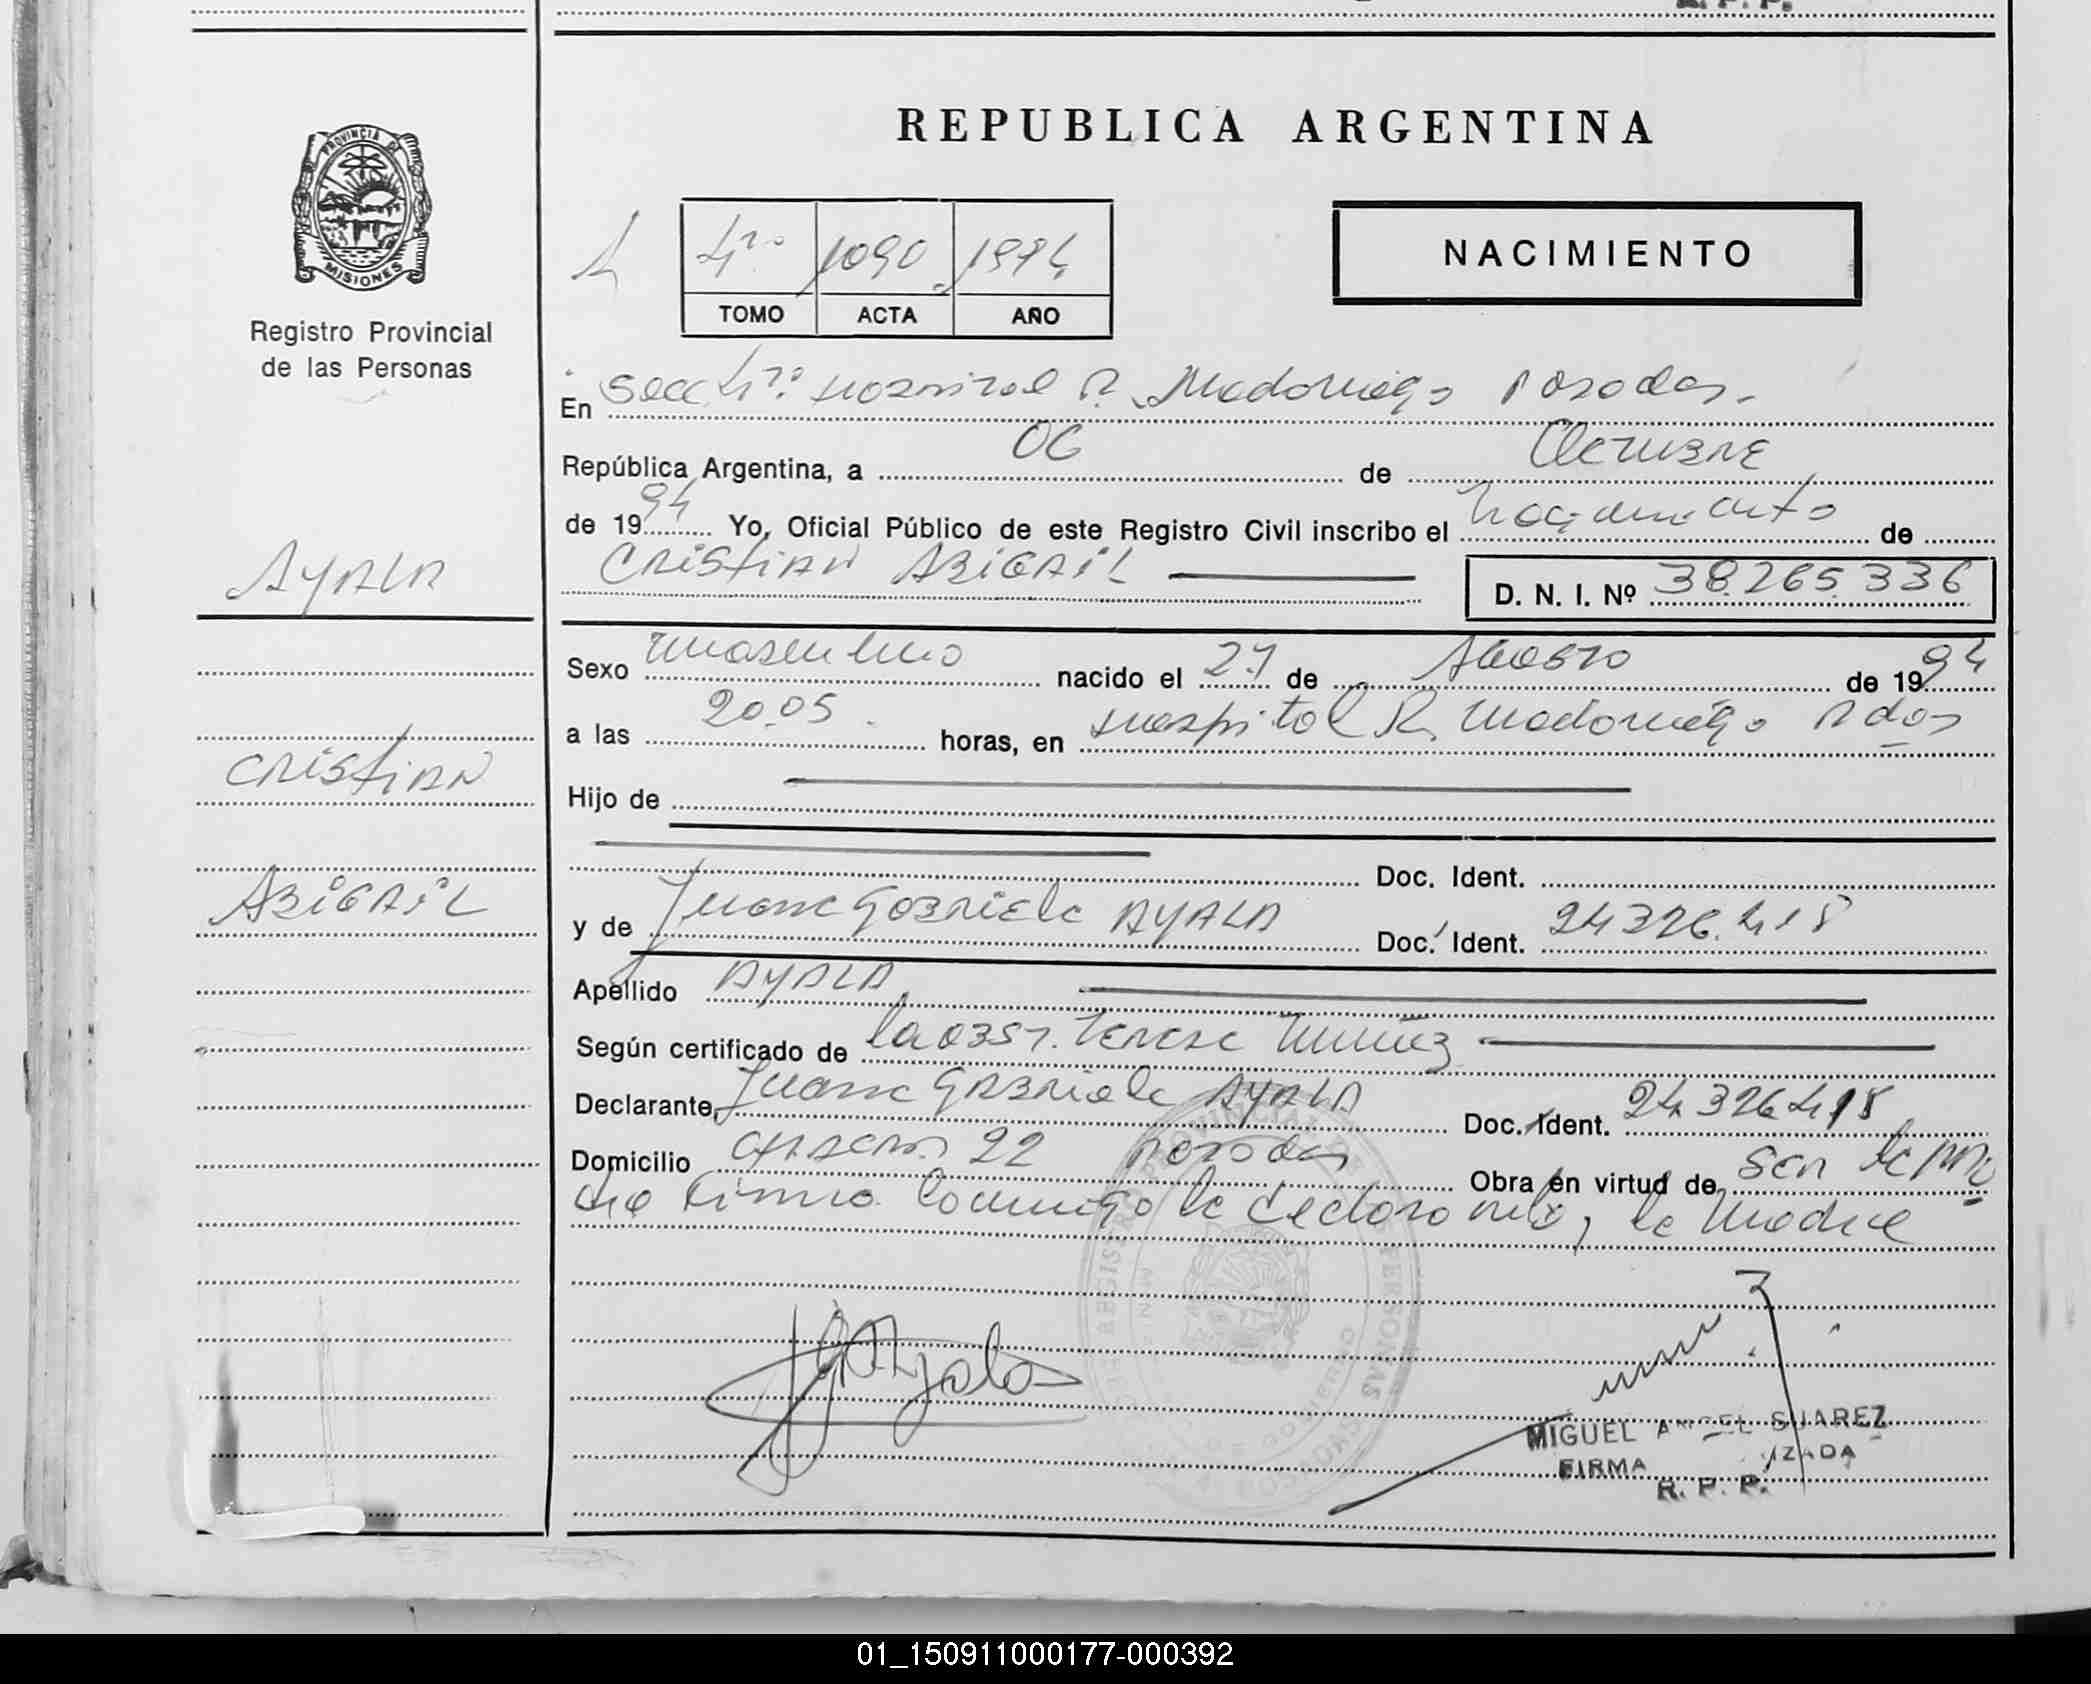 R. P. P.
REPUBLICA ARGENTINA
PROVINCIA DE
MISIONES
Registro Provincial
de las Personas
4
4to 1090 1994
TOMO ACTA AÑO
NACIMIENTO
En Secc 4ta. Hospital R. Madariaga Posadas.
República Argentina, a 06 de Octubre
de 1994 Yo, Oficial Público de este Registro Civil inscribo el nacimiento de
CRISTIAN ABIGAIL D. N. I. Nº 38.265.336
AYALA
Sexo masculino nacido el 27 de Agosto de 1994
a las 20.05 horas, en Hospital R. Madariaga Pdas
CRISTIAN
Hijo de
Doc. Ident.
ABIGAIL
y de Juana Gabriela AYALA Doc. Ident. 24.326.418
Apellido AYALA
Según certificado de la obst. Teresa Muñiz
Declarante, Juana Gabriela AYALA Doc. Ident. 24.326.418
Domicilio 22 Posadas Obra en virtud de ser la
firma conmigo la declarante, la madre
MIGUEL ANGEL SUAREZ
FIRMA
R. P. P.
01_150911000177-000392